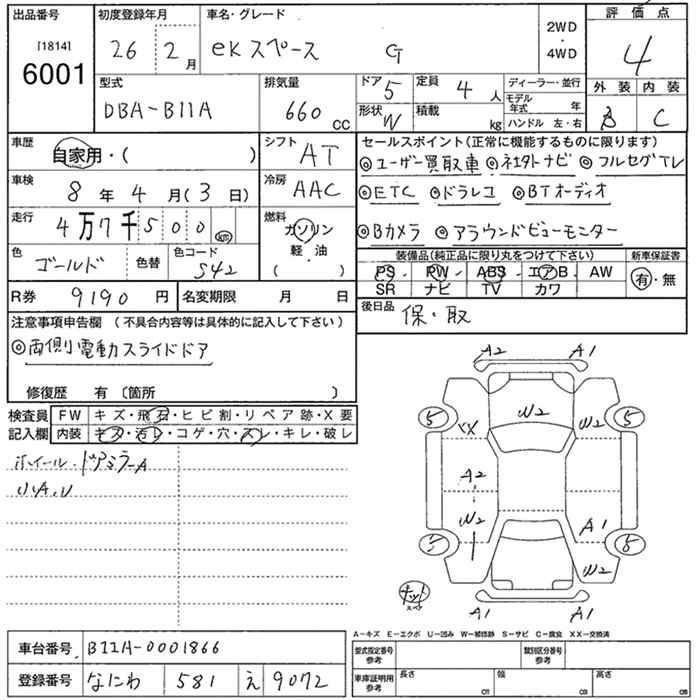 出品番号 初度登録年月 車名・グレード 評価点
[1814] 6001 26 2月 ekスペース G 2WD・4WD 4
型式 排気量 ドア 5 定員 4人 ディーラー・並行 外装 内装
DBA-B11A 660 CC 形状 W 積載 kg モデル年式 年 ハンドル 左・右 B C
車歴 自家用・( ) シフト AT セールスポイント(正常に機能するものに限ります)
◎ユーザー買取車 ◎社外ナビ ◎フルセグTV
車検 8年 4月(3日) 冷房 AAC
◎ETC ◎ドラレコ ◎BTオーディオ
走行 4万7千500 km 燃料 ガソリン 軽・油 ( )
◎Bカメラ ◎アラウンドビューモニター
色 ゴールド 色替 色コード S42
装備品(純正品に限り丸をつけて下さい) 新車保証書
PS PW ABS エアB AW 有・無
SR ナビ TV カワ
R券 9190円 名変期限 月 日
後日品 保・取
注意事項申告欄 (不具合内容等は具体的に記入して下さい)
◎両側電動スライドドア
修復歴 有 〔箇所 〕
検査員 FW キズ・飛石・ヒビ割・リペア跡・X要
記入欄 内装 キズ・汚レ・コゲ・穴・スレ・キレ・破レ
ホイール・ドアミラーA
小A、U
A2 A1
5 W2 5
XX W2
A2
W2 A1
5 5
W2
A1 A1
A-キズ E-エクボ U-凹み W-補修跡 S-サビ C-腐食 XX-交換済
車台番号 B11A-0001866 型式指定番号 参考 類別区分番号 参考
登録番号 なにわ 581 え 9072 車庫証明用 参考 長さ cm 幅 cm 高さ cm